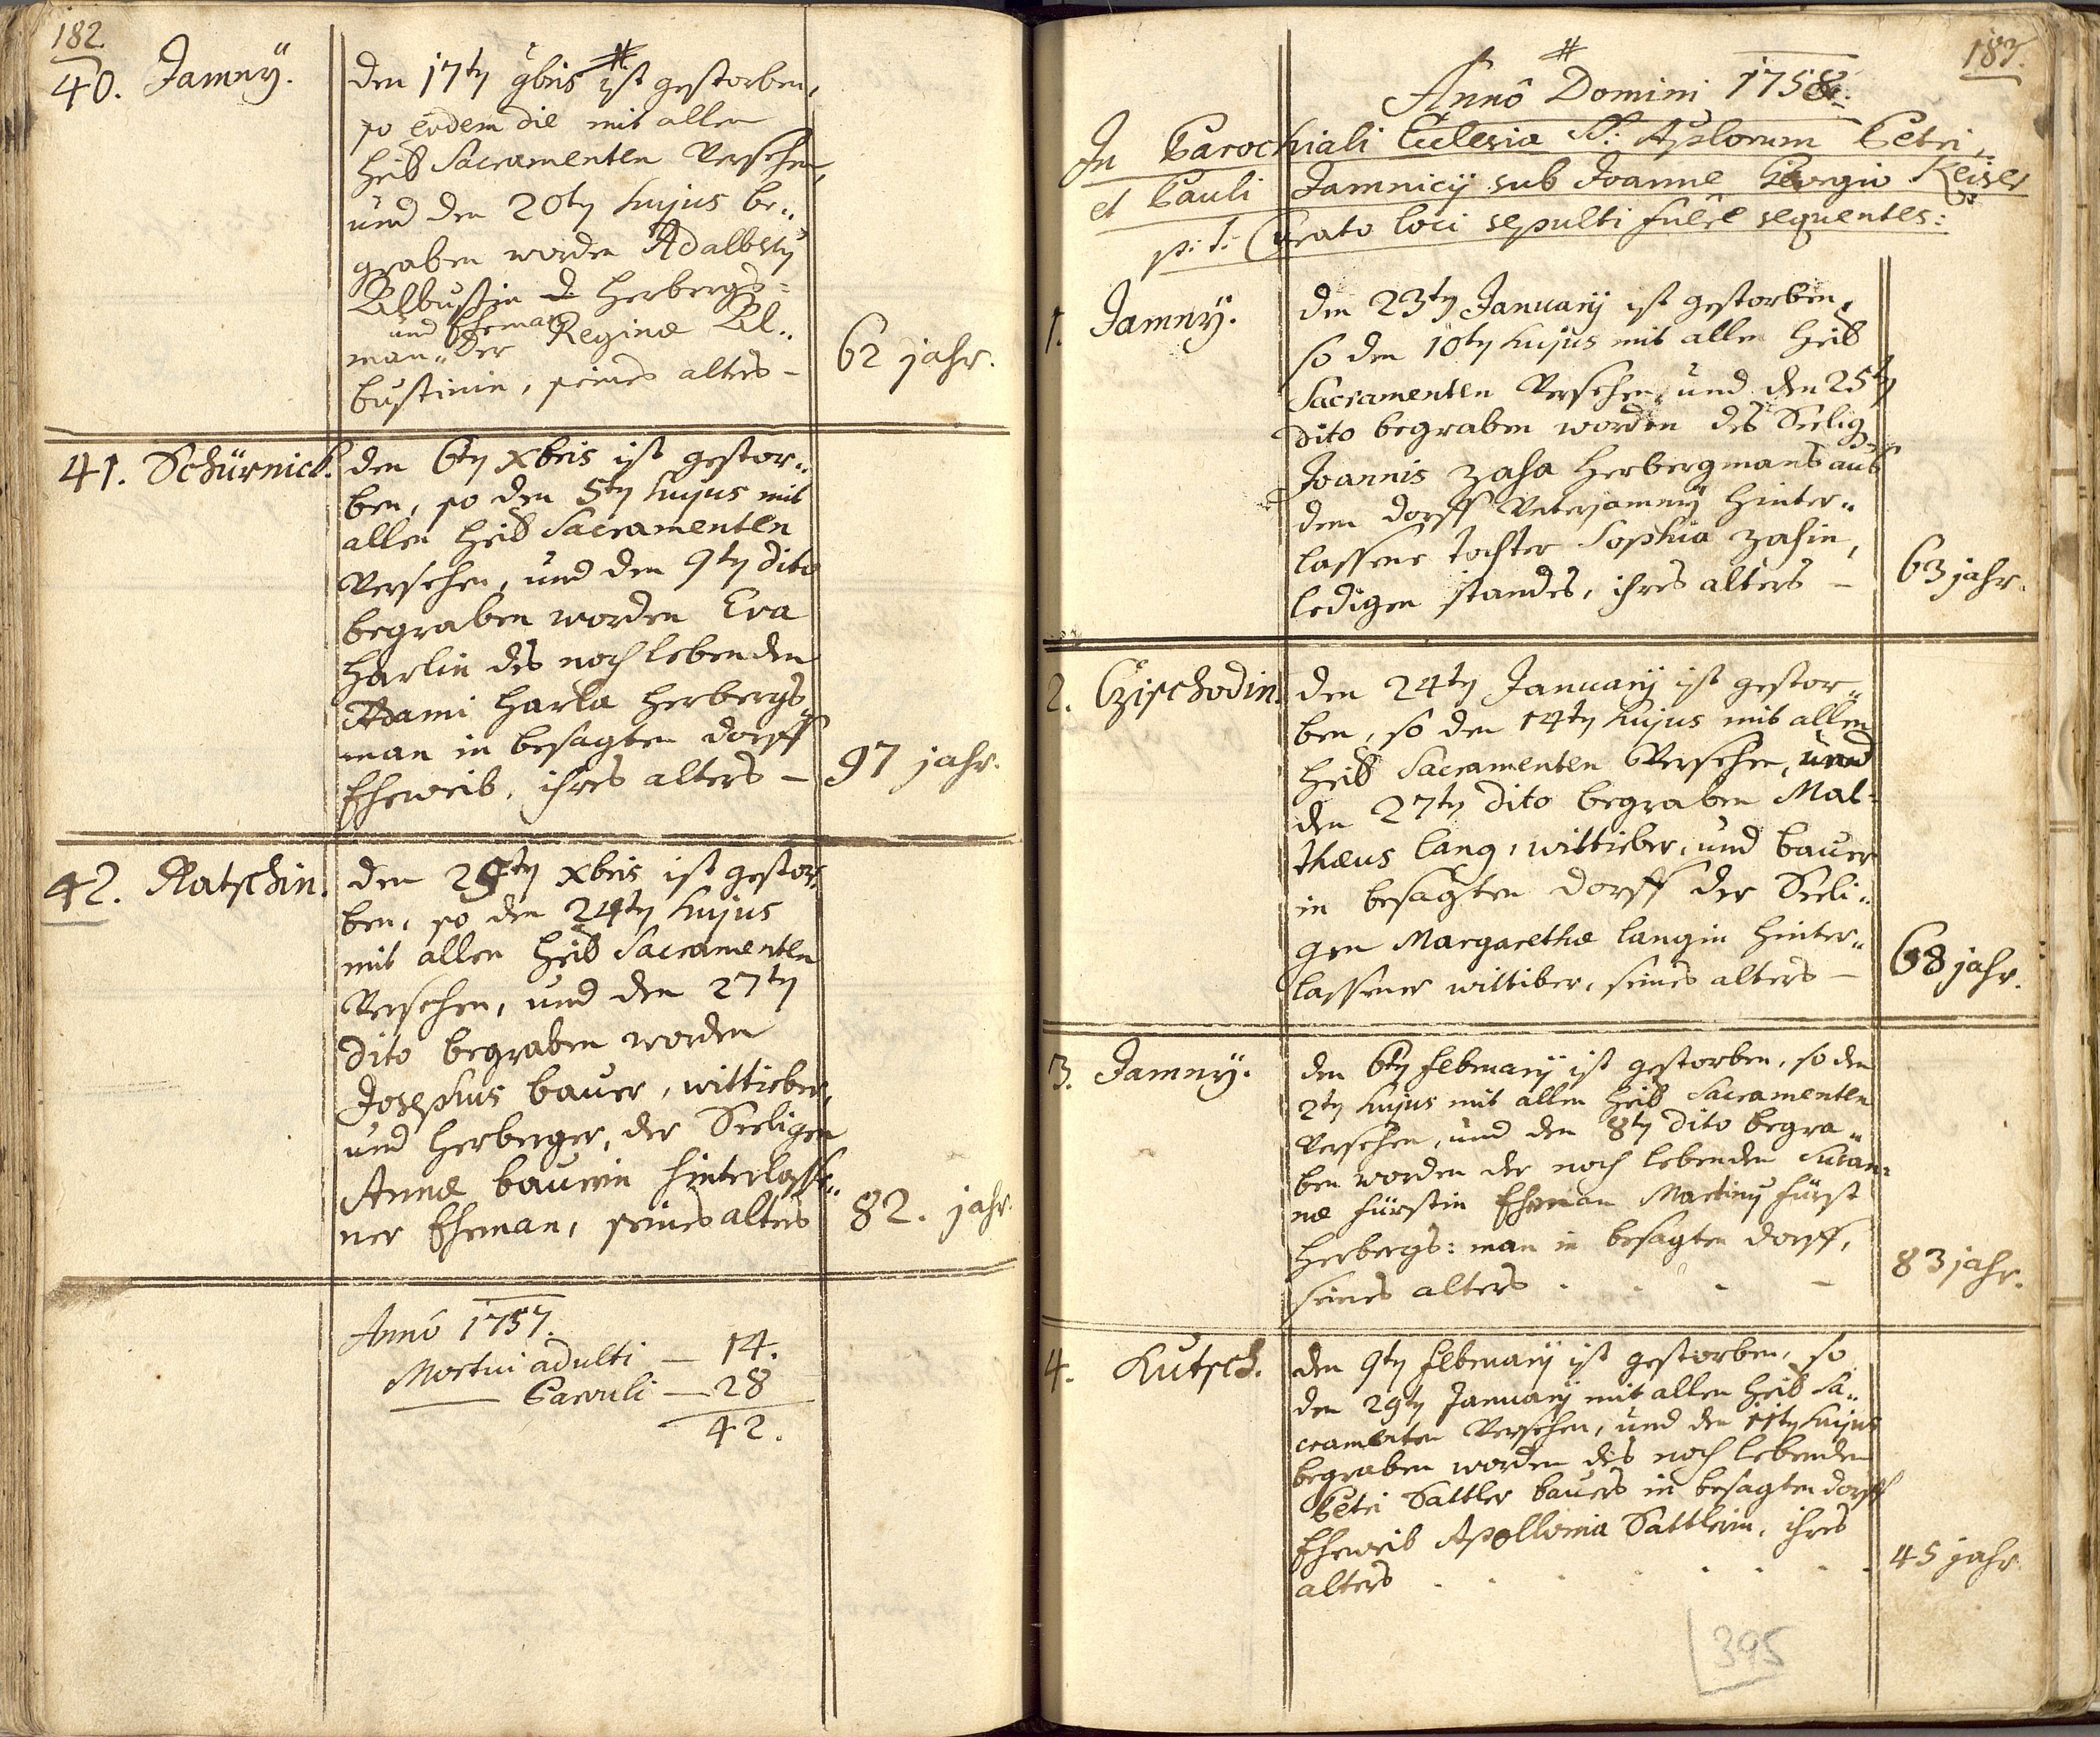 182.
40. Jamnÿ.
den 17ty 9bris # ist gestorben,
so eodem die mit allen
heil. Sacramenten versehen,
und den 20ty hujus be„
graben worden Adalbertj
Albustin d Herbergs=
und Eheman
man „ der Reginæ Al„
bustinin, seines alters – 62 jahr.
41. Schürnick. den 6ty xbris ist gestor„
ben, so den 5ty hujus mit
allen heil. Sacramenten
versehen, und den 9ty dito
begraben worden Eva
Harlin des noch lebenden
Adami Harla Herbergs„
man in besagten dorff
Eheweib, ihres alters – 97 jahr.
42. Ratschin. den 25ty xbris ist gestor„
ben, so den 24ty hujus
mit allen heil. Sacramenten
versehen, und den 27ty
dito begraben worden
Josephus bauer, wittieber,
und Herberger, der Seeligen
Annæ bauerin hinterlasse„
ner Eheman, seines alters 82. jahr.
Annô 1757.
Mortui adulti – 14.
—— Parvuli – 28
42.
183.
#
Annô Domini 1758.
In Parochiali Ecclesia SS. Aplorum Petri,
et Pauli Jamnicij sub Joanne Georgio Keiser
p: t: Curato loci sepulti fuêre sequentes:
1. Jamnÿ. den 23ty Januarÿ ist gestorben,
so den 10ty hujus mit allen heil.
Sacramenten versehen, und den 25ty
dito begraben worden des Seelig.
Joannis Zaha Herbergmans aus
dem dorff Unterjamnÿ hinter„
lassene tochter Sophia Zahin,
ledigen standes, ihres alters – 63 jahr.
2. Czischodin. den 24ty Januarÿ ist gestor„
ben, so den 14ty hujus mit allen
heil. Sacramenten versehen, und
den 27ty dito begraben Mat=
thæus Lang, wittieber, und bauer
in besagten dorff der Seeli„
gen Margarethæ Langin hinter„
lassener wittiber, seines alters – 68 jahr.
3. Jamnÿ. den 6ty Februarÿ ist gestorben, so den
2ty hujus mit allen heil. Sacramenten
versehen, und den 8ty dito begra„
ben worden der noch lebenden Susan=
næ Fürstin Eheman Martinj Fürst
Herbergs: man in besagten dorff,
seines alters . . . – 83 jahr.
4. Kutsch. den 9ty Februarÿ ist gestorben, so
den 29ty Januarÿ mit allen heil. Sa„
cramenten versehen, und den 11ty hujus
begraben worden des noch lebenden
Petri Sattler bauers in besagten dorff
Eheweib Apollonia Sattlerin, ihres
alters . . . . . . . 45 jahr.
395